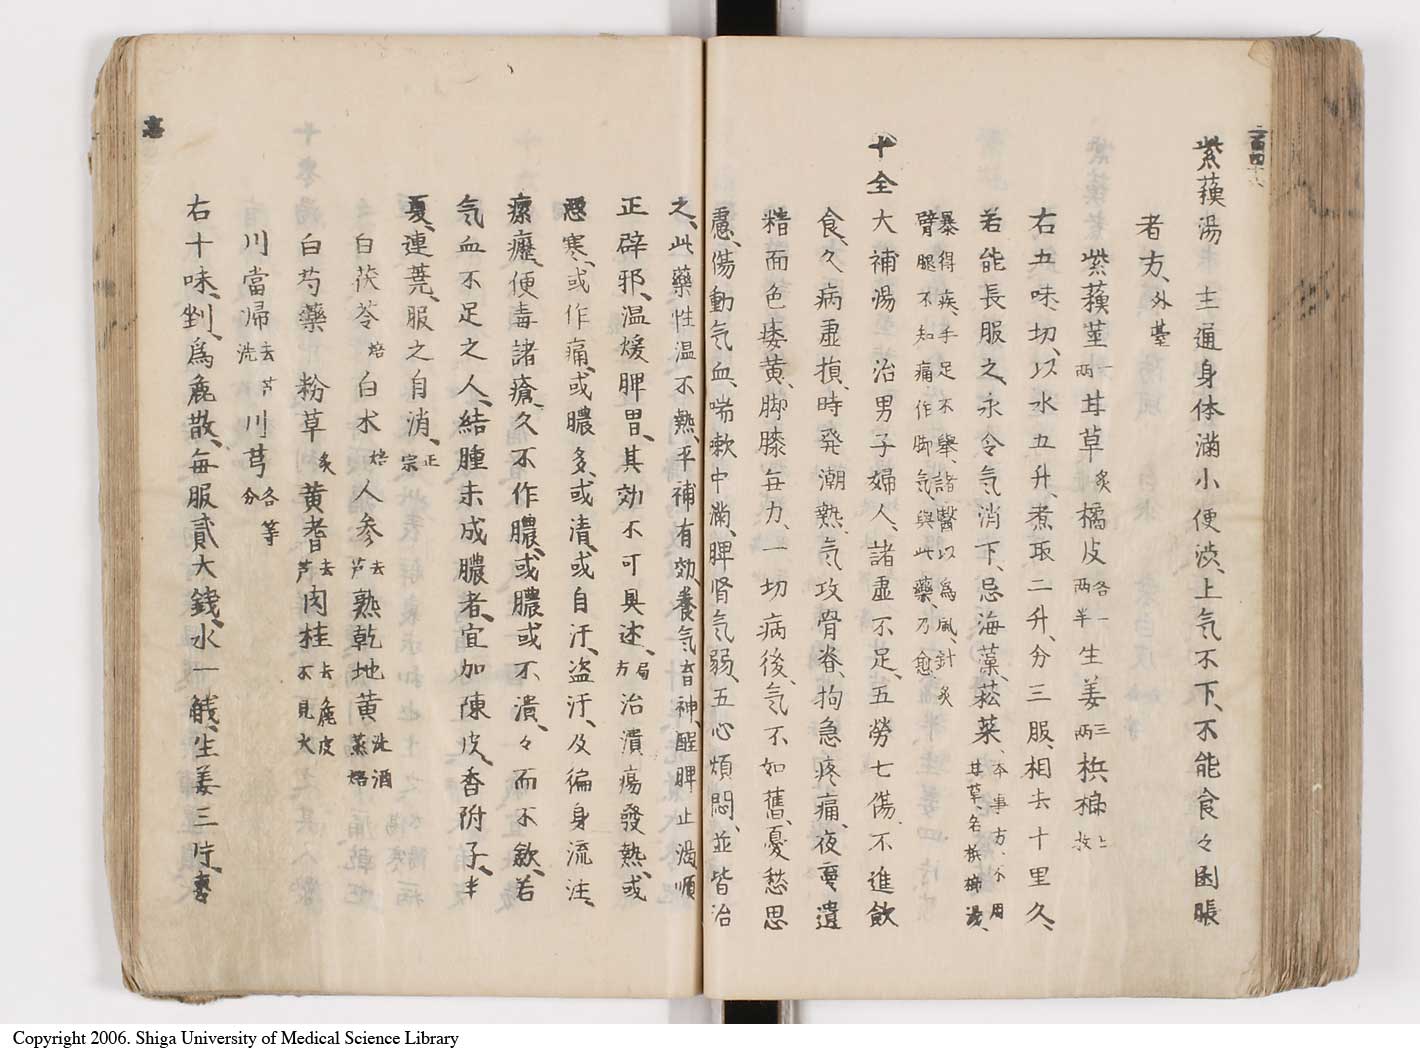 紫蘓湯主通身体滿小便渋、上气不下、不能食々困脹
者方、外臺
紫蘓莖一両甘草炙橘皮各一両半生姜三両梹榔二枚
右五味切、以水五升、煮取二升、分三服、相去十里久、
若能長服之、永令气消下、忌海藻、菘菜、本事方、不用甘草、名梹榔湯、
暴得疾、手足不舉、諸醫以爲風、針炙臂腿不知痛作脚气、與此藥、乃愈、
十全大補湯治男子婦人、諸虛不足、五勞七傷、不進飲
食、久病虛損、時発潮熱、气攻骨脊、拘急疼痛、夜夢遺
精面色痿黄、脚膝無力、一切病後、气不如舊、憂愁思
慮、傷動气血、喘嗽中滿、脾腎气弱、五心煩悶、並皆治
之、此藥性温不熱、平補有効、養气育神、醒脾止渴、順
正辟邪、温煖脾胃、其効不可具述、局方治潰瘍發熱、或
悪寒、或作痛、或膿多、或清、或自汗、盗汗、及徧身流注、
瘰癧、便毒諸瘡、久不作膿、或膿或不潰、々而不歛、若
气血不足之人、結腫未成膿者、宜加陳皮、香附子、半
夏、連蕘、服之自消、正宗
白茯苓焙白术焙人参去芦熟乾地黄洗酒蒸焙
白芍藥粉草炙黄耆去芦肉桂去麁皮不見火
川當帰去芦洗川芎各等分
右十味、剉、爲麁散、毎服貳大錢、水一戔、生姜三片、棗